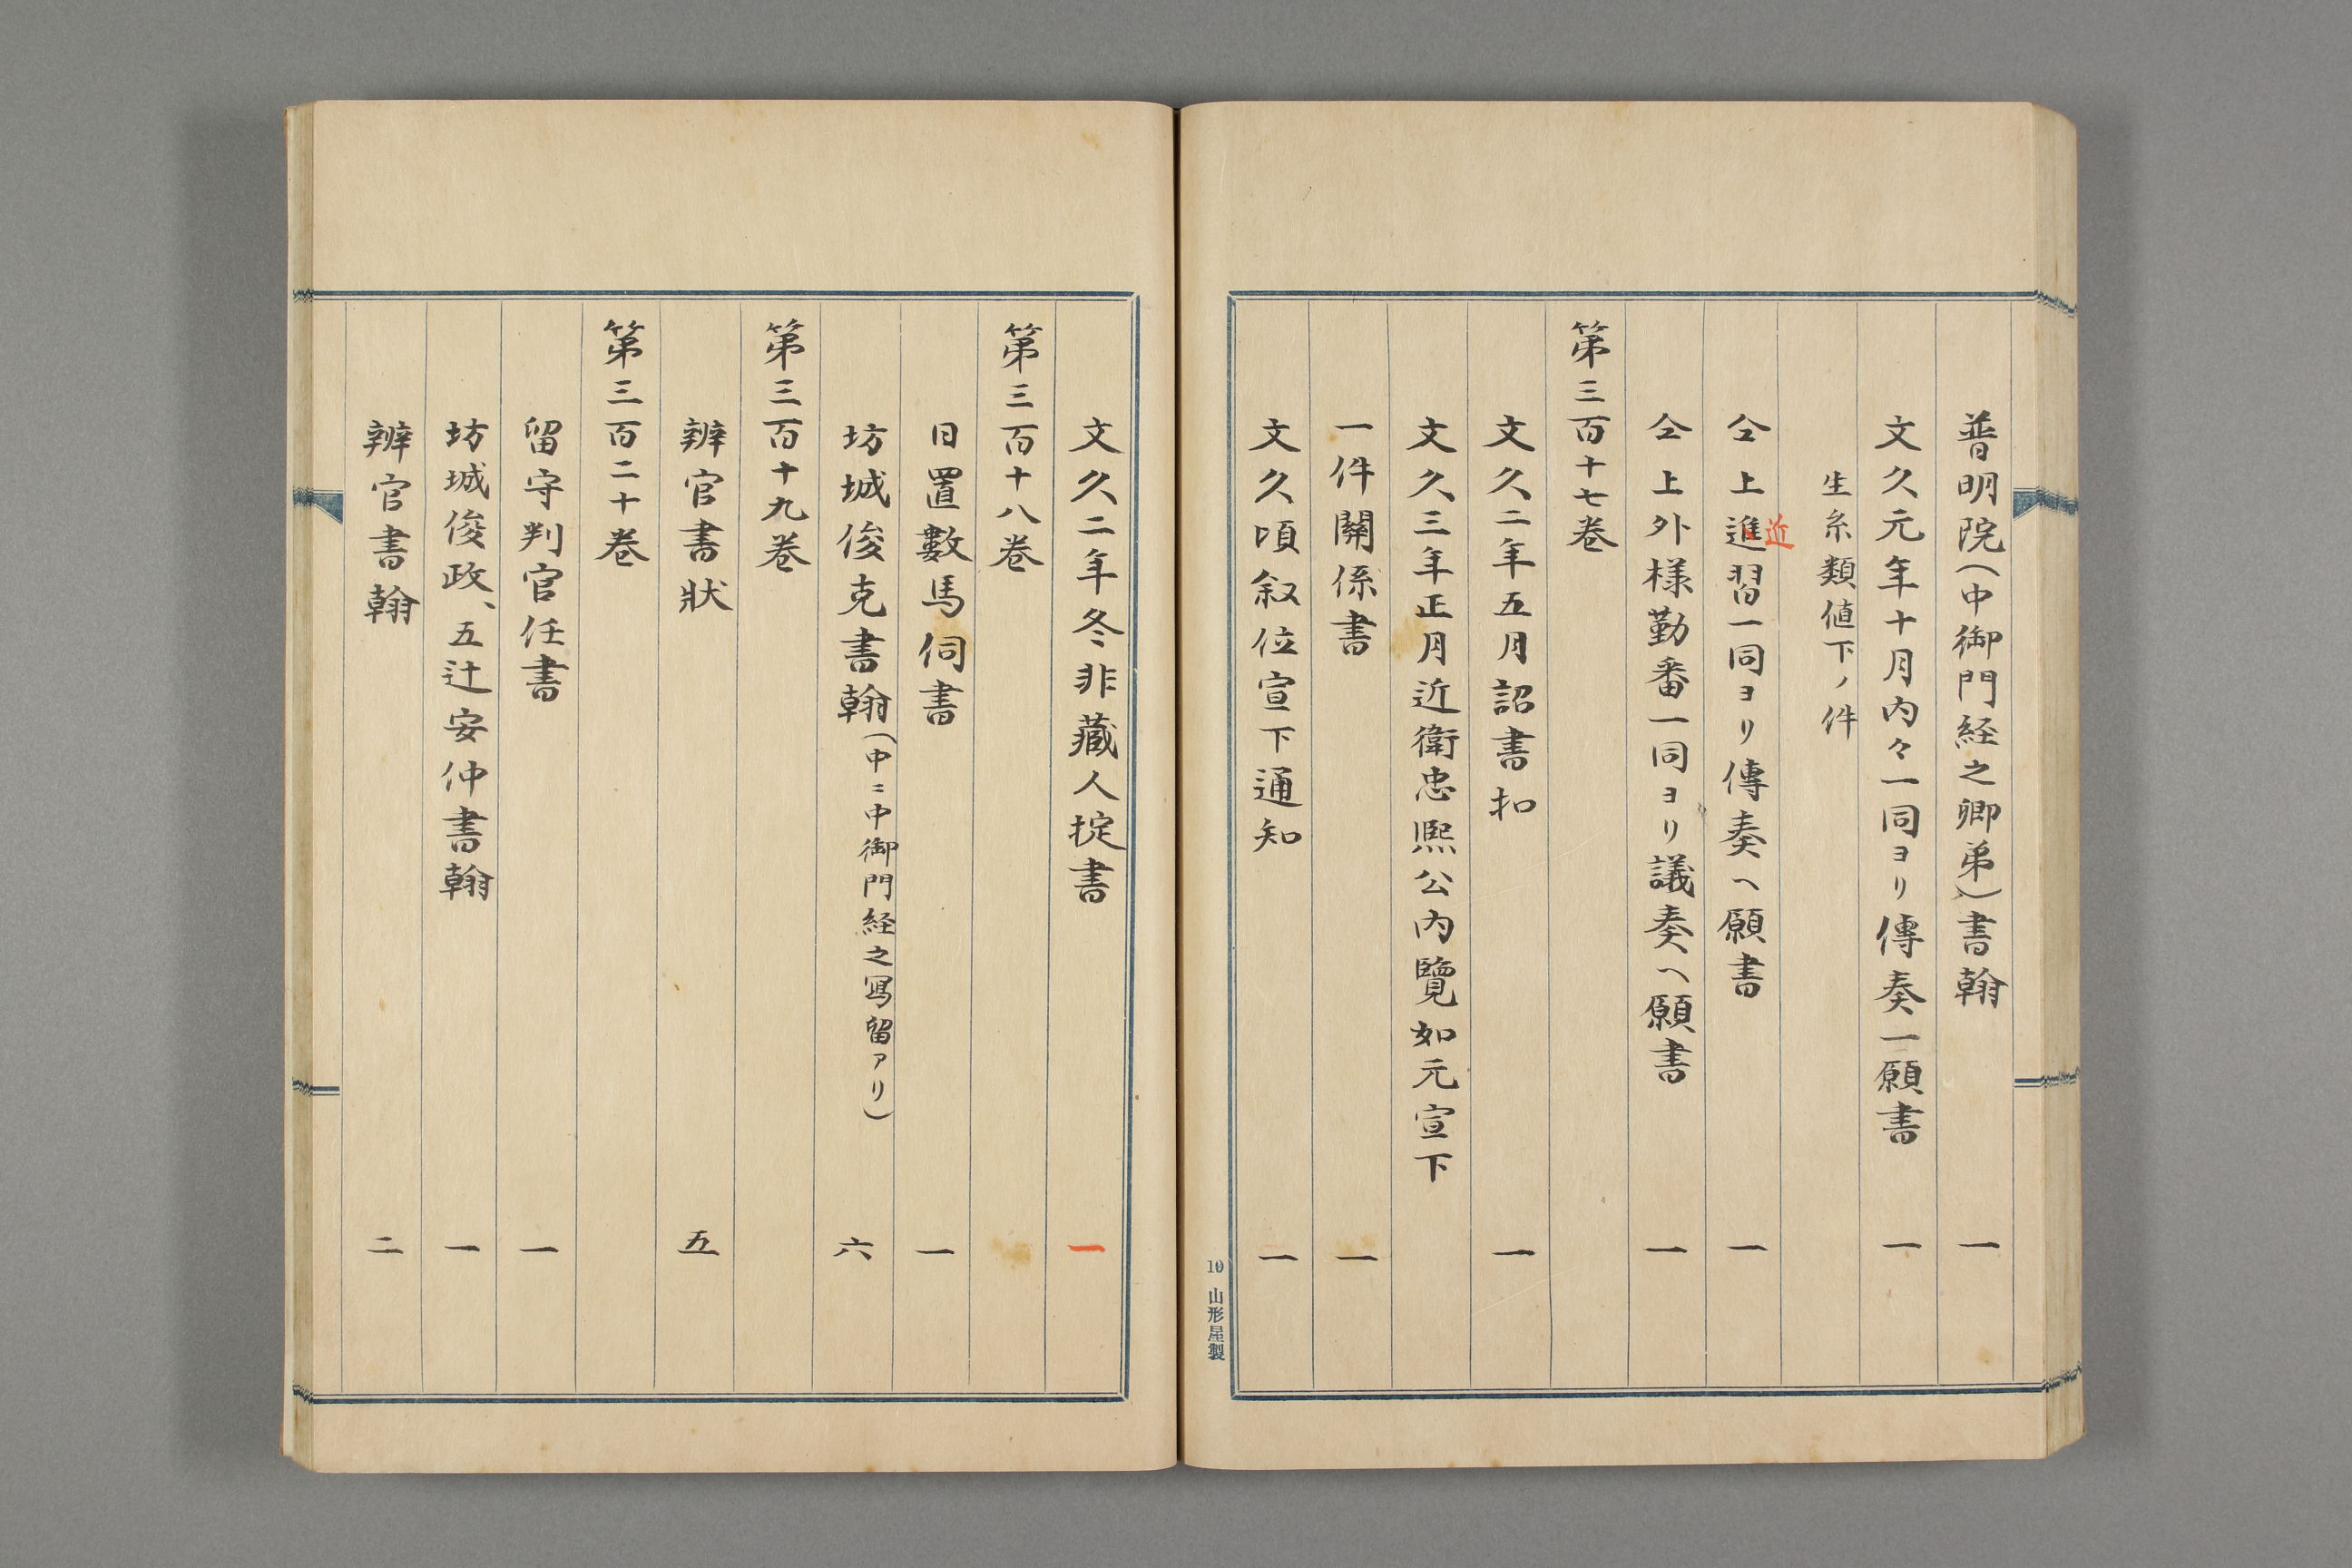 普明院(中御門経之卿弟)書翰 一
文久元年十月内々一同ヨリ傳奏一願書 一
生糸類値下ノ件
仝上進習一同ヨリ傳奏ヘ願書 一
近
仝上外様勤番一同ヨリ議奏ヘ願書 一
第三百十七巻
文久二年五月詔書扣 一
文久三年正月近衛忠熙公内覽如元宣下
一件關係書 一
文久頃叙位宣下通知 一
10 山形屋製
文久二年冬非藏人掟書 一
第三百十八巻
日置數馬伺書 一
坊城俊克書翰(中ニ中御門経之寫留アリ) 六
第三百十九巻
辨官書状 五
第三百二十巻
留守判官任書 一
坊城俊政、五辻安仲書翰 一
辨官書翰 二